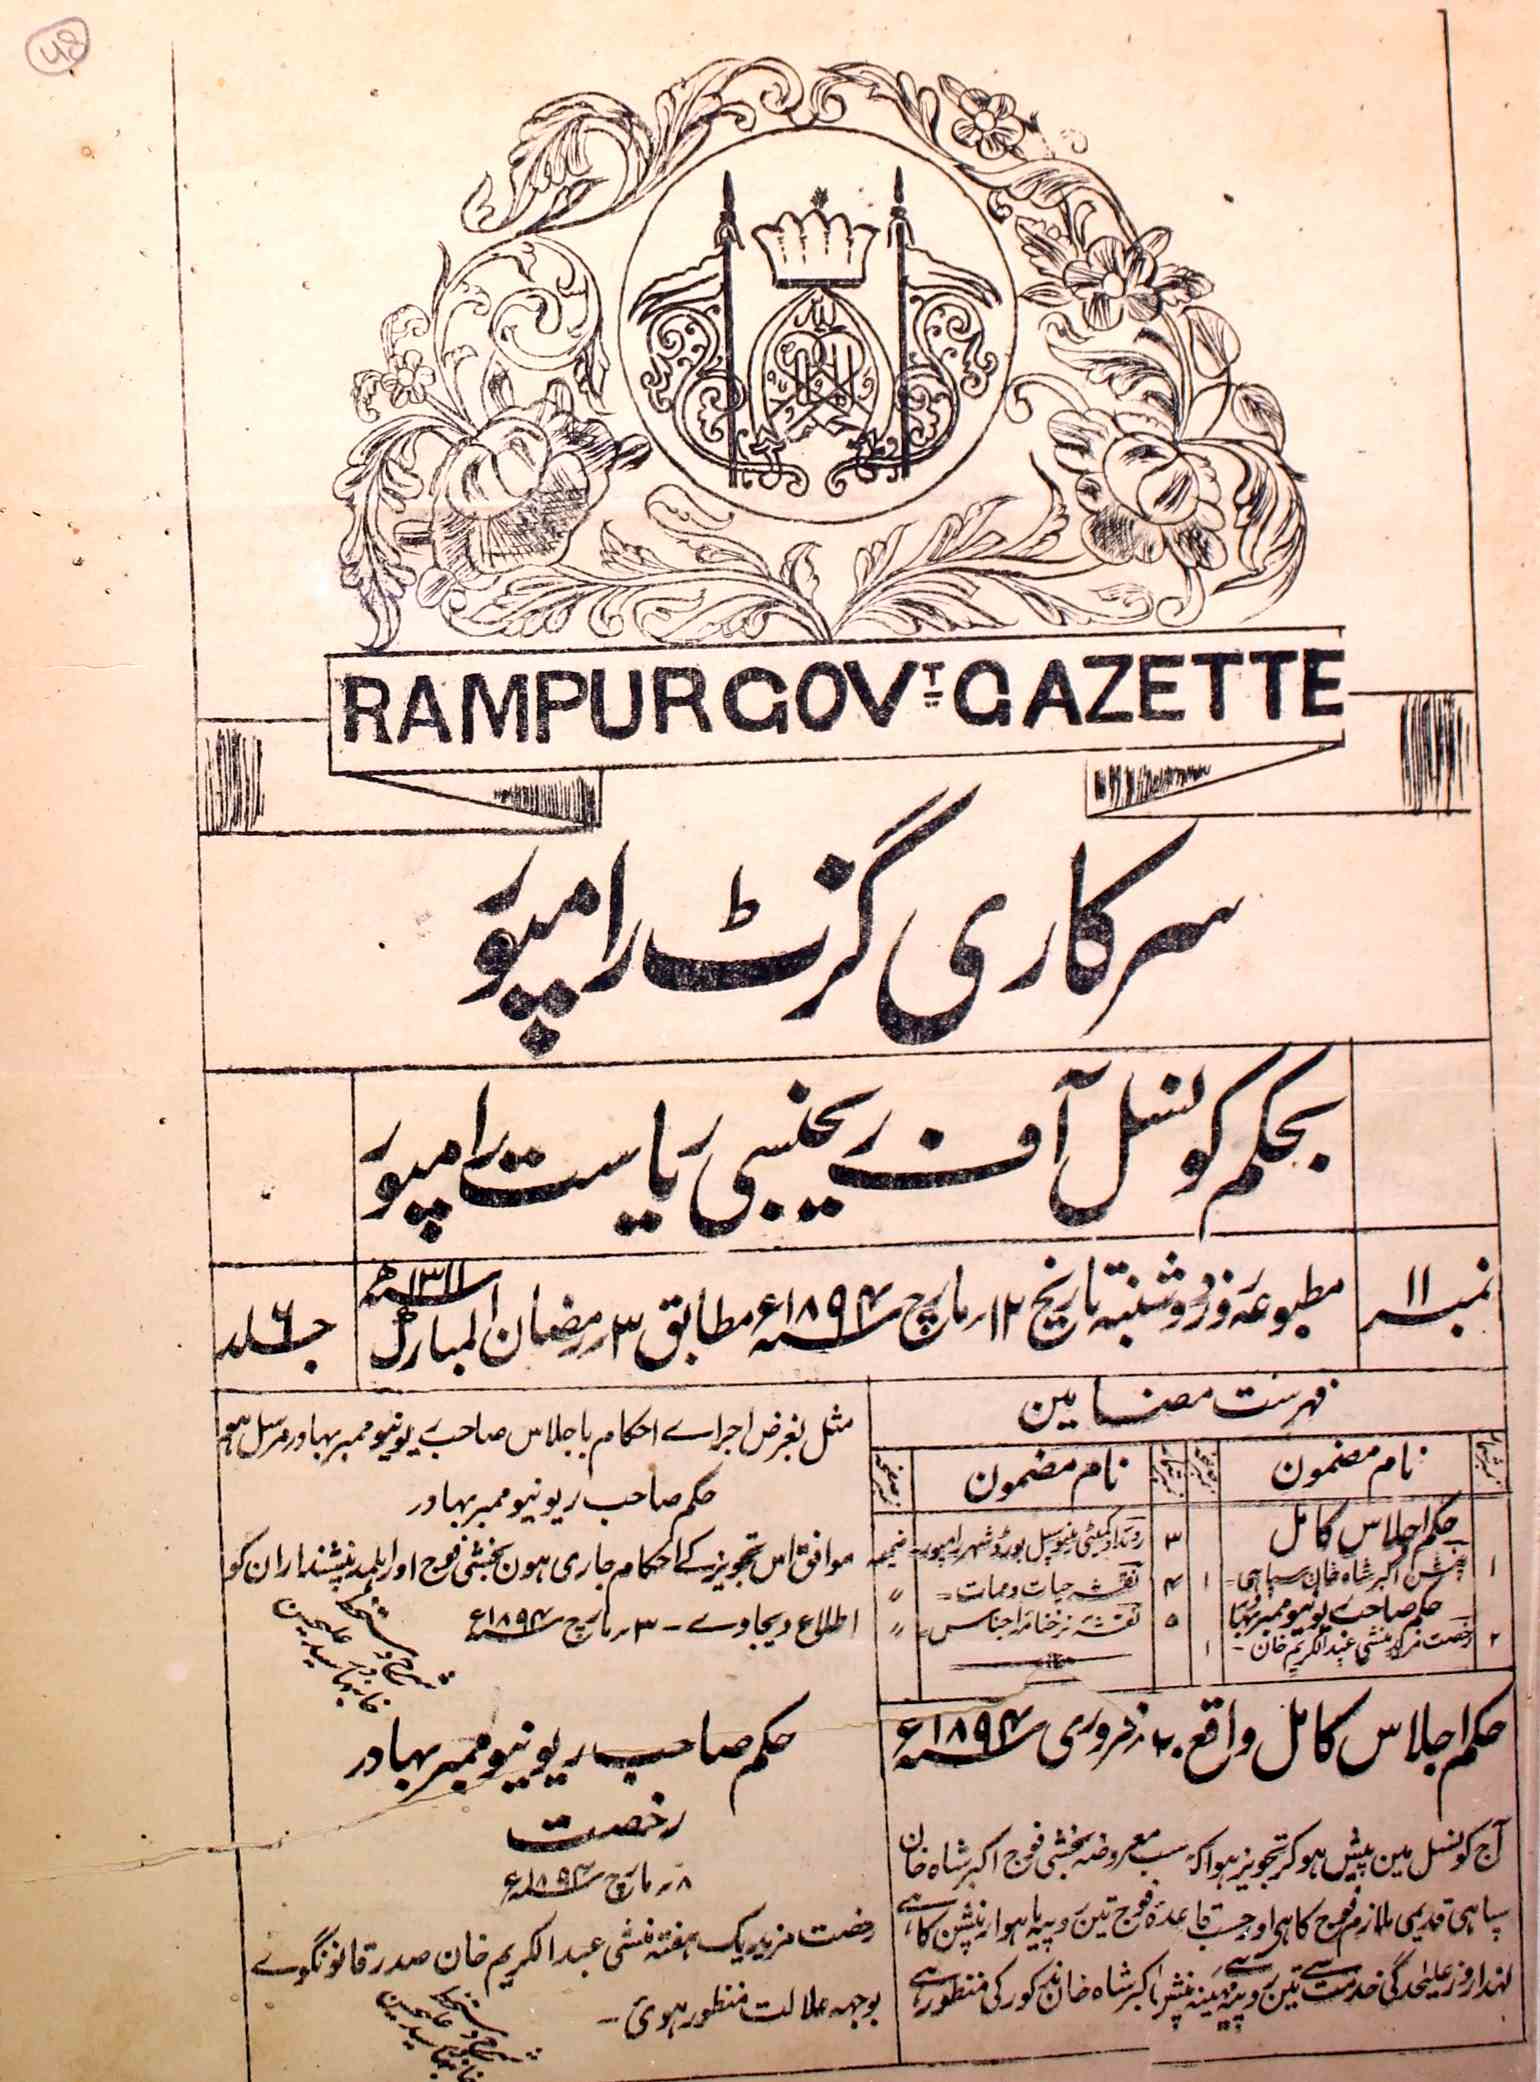 RAMPUR GOVT GAZETTE
سرکاری گزٹ رامپور
بحکم کونسل آف ریجنسی ریاست رامپور
نمبر ۱۱
مطبوعہ روز دوشنبہ تاریخ ۱۲ مارچ سنہ ۱۸۹۴ء مطابق ۳ رمضان المبارک سنہ ۱۳۱۱ھ
جلد ۶
فہرست مضامین
نام مضمون
نام مضمون
حکم اجلاس کامل
۱ پنشن اکبر شاہ خان سپاہی ۱
حکم صاحب ریونیو ممبر بہادر
۲ رخصت مزید منشی عبدالکریم خان - ۱
۳ روئداد کمیٹی میونسپل بورڈ شہر رامپور - ضمیمہ
۴ نقشہ حیات و ممات = 〃
۵ نقشہ نرخنامہ اجناس = 〃
حکم اجلاس کامل واقع ۲۰ فروری سنہ ۱۸۹۴ء
آج کونسل مین پیش ہوکر تجویز ہوا کہ حسب معروضہ بخشی فوج اکبر شاہ خان
سپاہی قدیمی ملازم فوج کا ہی اور حسب قاعدہ فوج تین روپیہ ماہوار پنشن کا ہے
لہذا روز علیحدگی خدمت سے تین روپیہ مہینہ پنشن اکبر شاہ خان مذکور کی منظور ہے
مثل بغرض اجراے احکام باجلاس صاحب ریونیو ممبر بہادر مرسل ہو
حکم صاحب ریونیو ممبر بہادر
موافق اس تجویز کے احکام جاری ہون بخشی فوج اور اہلمد پنشنداران کو
اطلاع دیجاوے - ۳ مارچ سنہ ۱۸۹۴ء
شرح دستخط
سید علی حسین
خان بہادر
حکم صاحب ریونیو ممبر بہادر
رخصت
۸ مارچ سنہ ۱۸۹۴ء
رخصت مزید یک ہفتہ منشی عبدالکریم خان صدر قانونگوے
بوجہہ علالت منظور ہوئی -
شرح دستخط
سید علی حسین